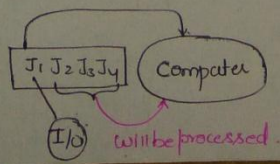 J1 J2 J3 J4
Computer
I/O
will be processed.